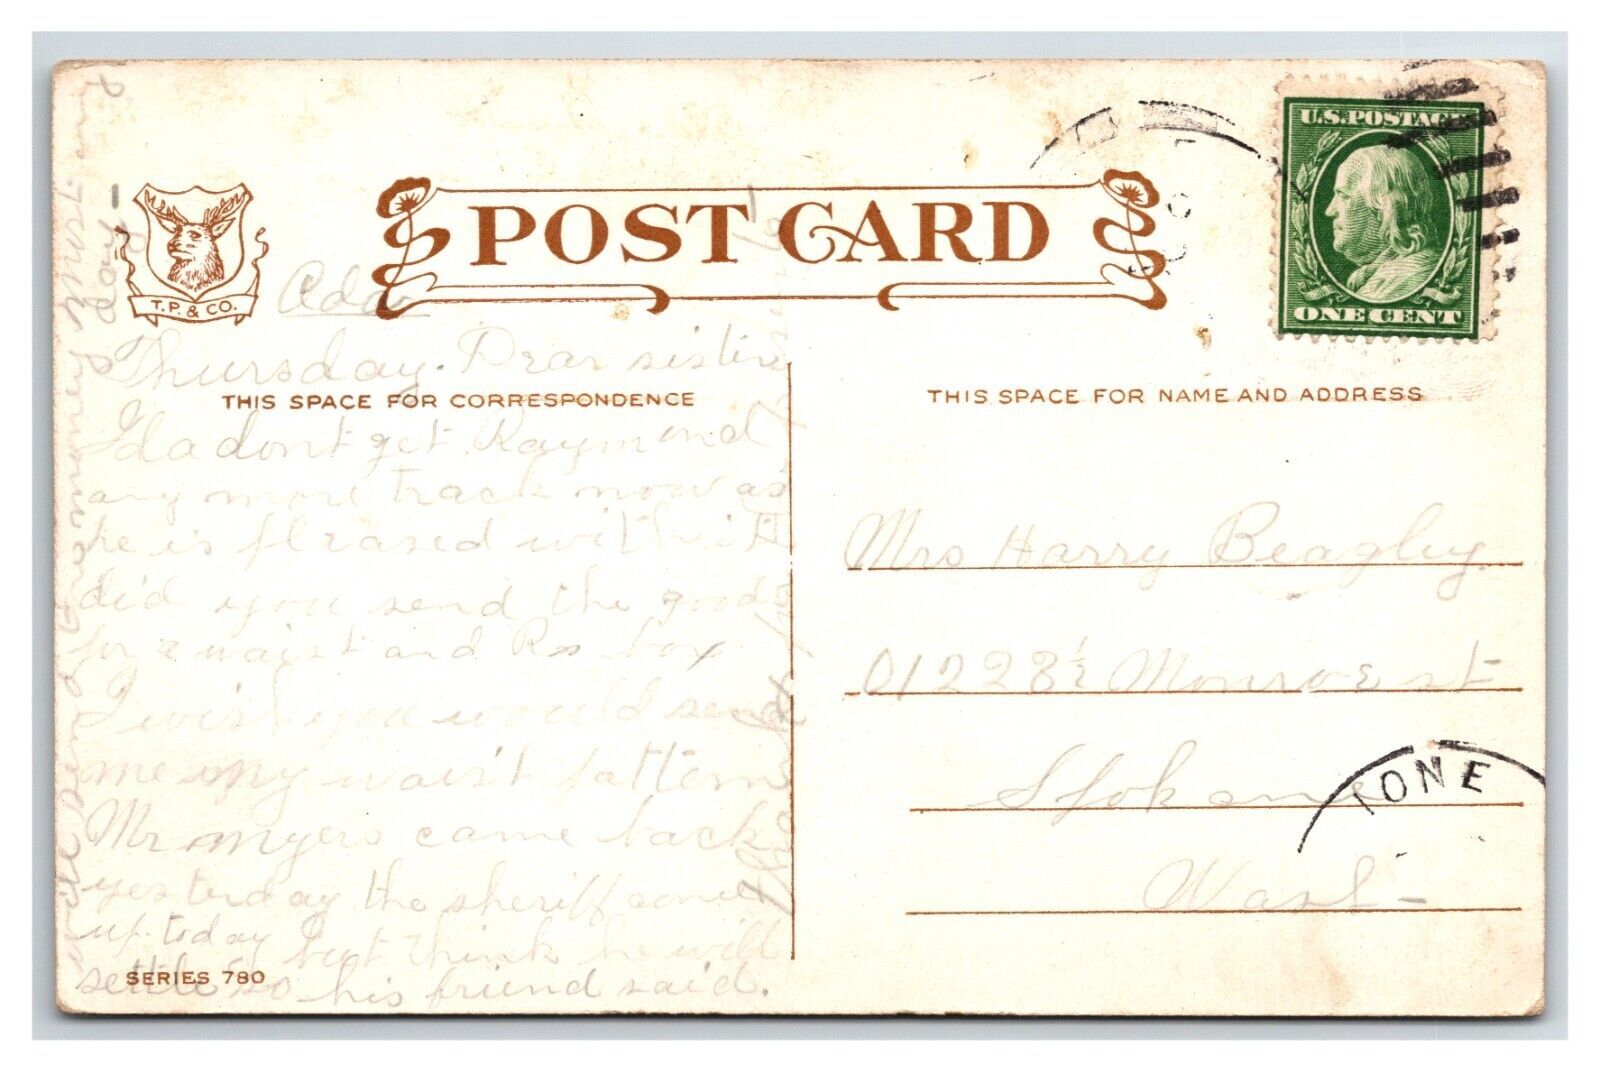 U.S. POSTAGE
ONE CENT
POST CARD
T. P. & CO.
Ada
Thursday. Dear sister
THIS SPACE FOR CORRESPONDENCE
Ida dont get Raymond
any more track now as
he is plrased with it
did you send the goods
for a waist and Rs box
I wish you would send
me my waist pattern
Mr Myers came back
yesterday the sheriff came
up today but think he will
settle so his friend said.
SERIES 780
THIS SPACE FOR NAME AND ADDRESS
Mrs Harry Beagley.
01228½ Monroe st
Spokane
Wash-
IONE